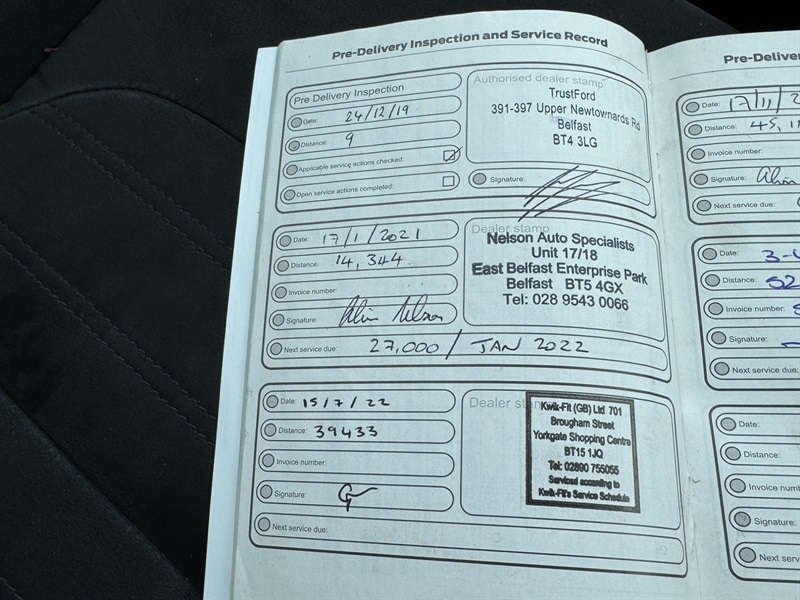 Pre-Delivery Inspection and Service Record
Pre Delivery Inspection
Date: 24/12/19
Distance: 9
Applicable service actions checked:
Open service actions completed:
Authorised dealer stamp
TrustFord
391-397 Upper Newtownards Rd
Belfast
BT4 3LG
Signature:
Date: 17/1/2021
Distance: 14,344
Invoice number:
Signature:
Next service due: 27,000 / JAN 2022
Dealer stamp
Nelson Auto Specialists
Unit 17/18
East Belfast Enterprise Park
Belfast BT5 4GX
Tel: 028 9543 0066
Date: 15/7/22
Distance: 39433
Invoice number:
Signature:
Next service due:
Dealer stam
Kwik-Fit (GB) Ltd 701
Brougham Street
Yorkgate Shopping Centre
BT15 1JQ
Tel: 02890 755055
Serviced according to
Kwik-Fit's Service Schedule
Pre-Deliver
Date: 17/11/2
Distance: 45,1
Invoice number:
Signature:
Next service due:
Date: 3-
Distance: 52
Invoice number:
Signature:
Next service due:
Date:
Distance:
Invoice numb
Signature:
Next servi